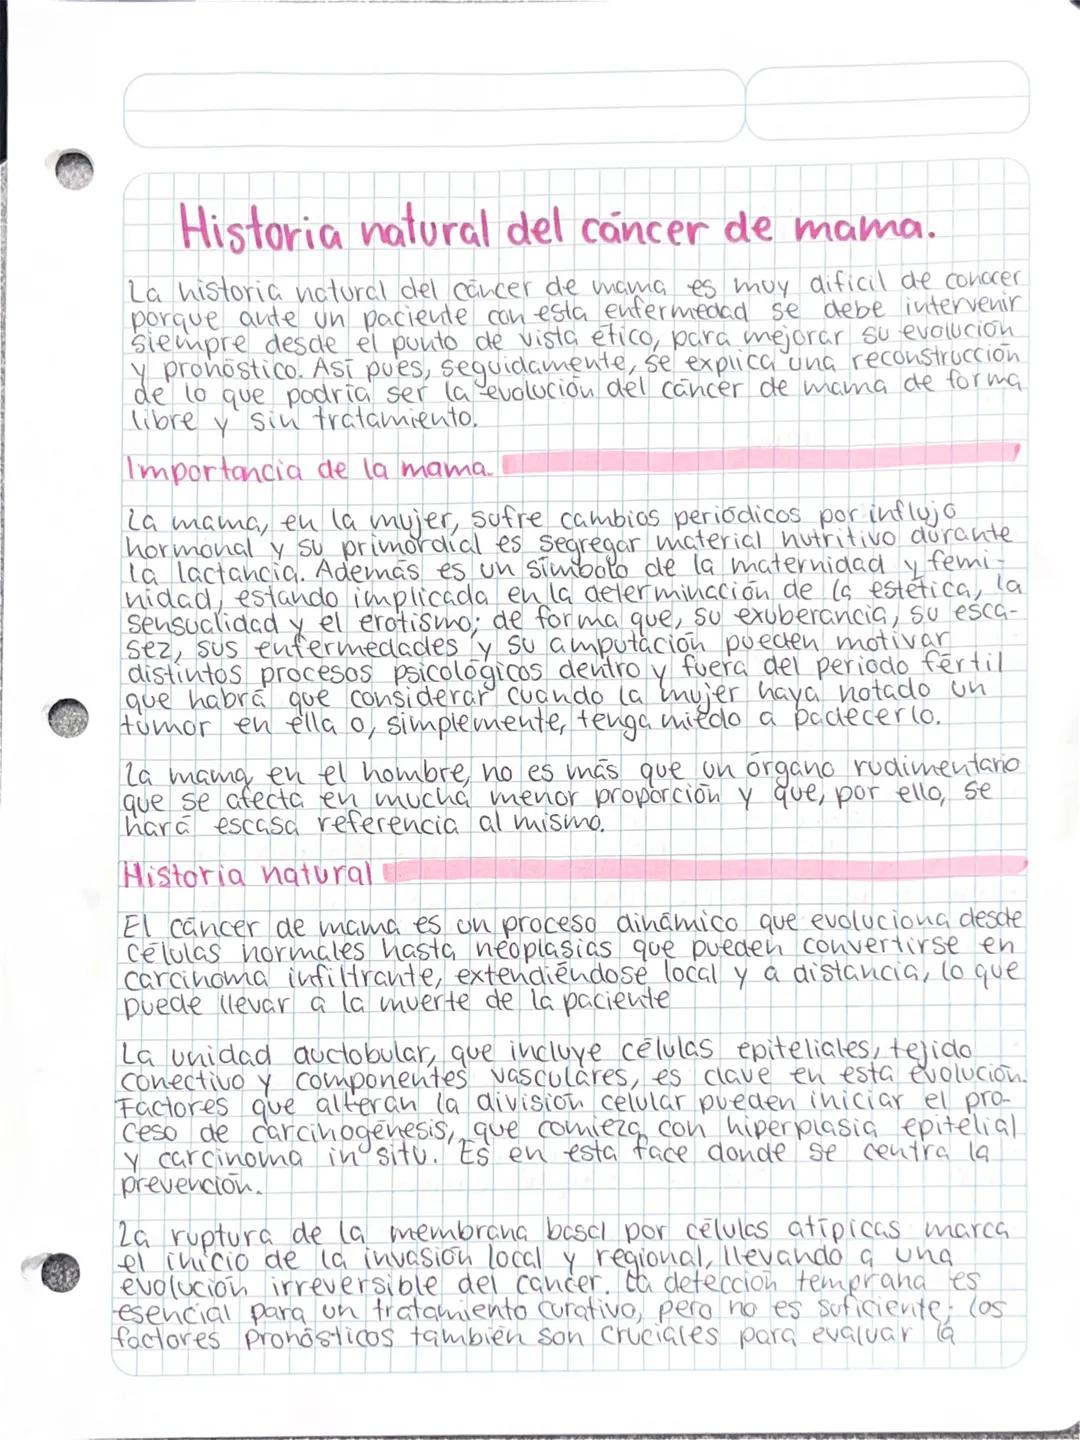 Historia natural del cáncer de mama.
La historia natural del cáncer de mama es muy dificil de conocer
porque ante un paciente con esta enfermedad se debe intervenir
siempre desde el punto de vista ético, para mejorar su evolución
y pronóstico. Así pues, seguidamente, se explica una reconstrucción
de lo que podría ser la evolución del cáncer de mama de forma
libre y sin tratamiento.
Importancia de la mama.
La mama, en la mujer, sufre cambios periódicos por influjo
hormonal y su primordial es segregar material nutritivo durante
la lactancia. Además es un símbolo de la maternidad y femi-
nidad, estando implicada en la determinación de la estética, la
sensualidad y el erotismo; de forma que, su exuberancia, su esca-
sez, sus enfermedades y su amputación pueden motivar
distintos procesos psicológicos dentro y fuera del periodo fértil
que habrá que considerar cuando la mujer haya notado un
tumor en ella o, simplemente, tenga miedo a padecerlo.
La mama, en el hombre, no es más que un órgano rudimentario
que se afecta en mucha menor proporción y que, por ello, se
hará escasa referencia al mismo.
Historia natural
El cáncer de mama es un proceso dinámico que evoluciona desde
células normales hasta neoplasias que pueden convertirse en
carcinoma infiltrante, extendiéndose local y a distancia, lo que
puede llevar a la muerte de la paciente
La unidad auctobular, que incluye células epiteliales, tejido
conectivo y componentes vasculares, es clave en esta evolución.
Factores que alteran la división celular pueden iniciar el pro-
ceso de carcinogénesis, que comieza con hiperplasia epitelial
y carcinoma in situ. Es en esta face donde se centra la
prevención.
La ruptura de la membrana basal por células atípicas marca
el inicio de la invasión local y regional, llevando a una
evolución irreversible del cáncer. La detección temprana es
esencial para un tratamiento curativo, pero no es suficiente; los
factores pronósticos también son cruciales para evaluar la